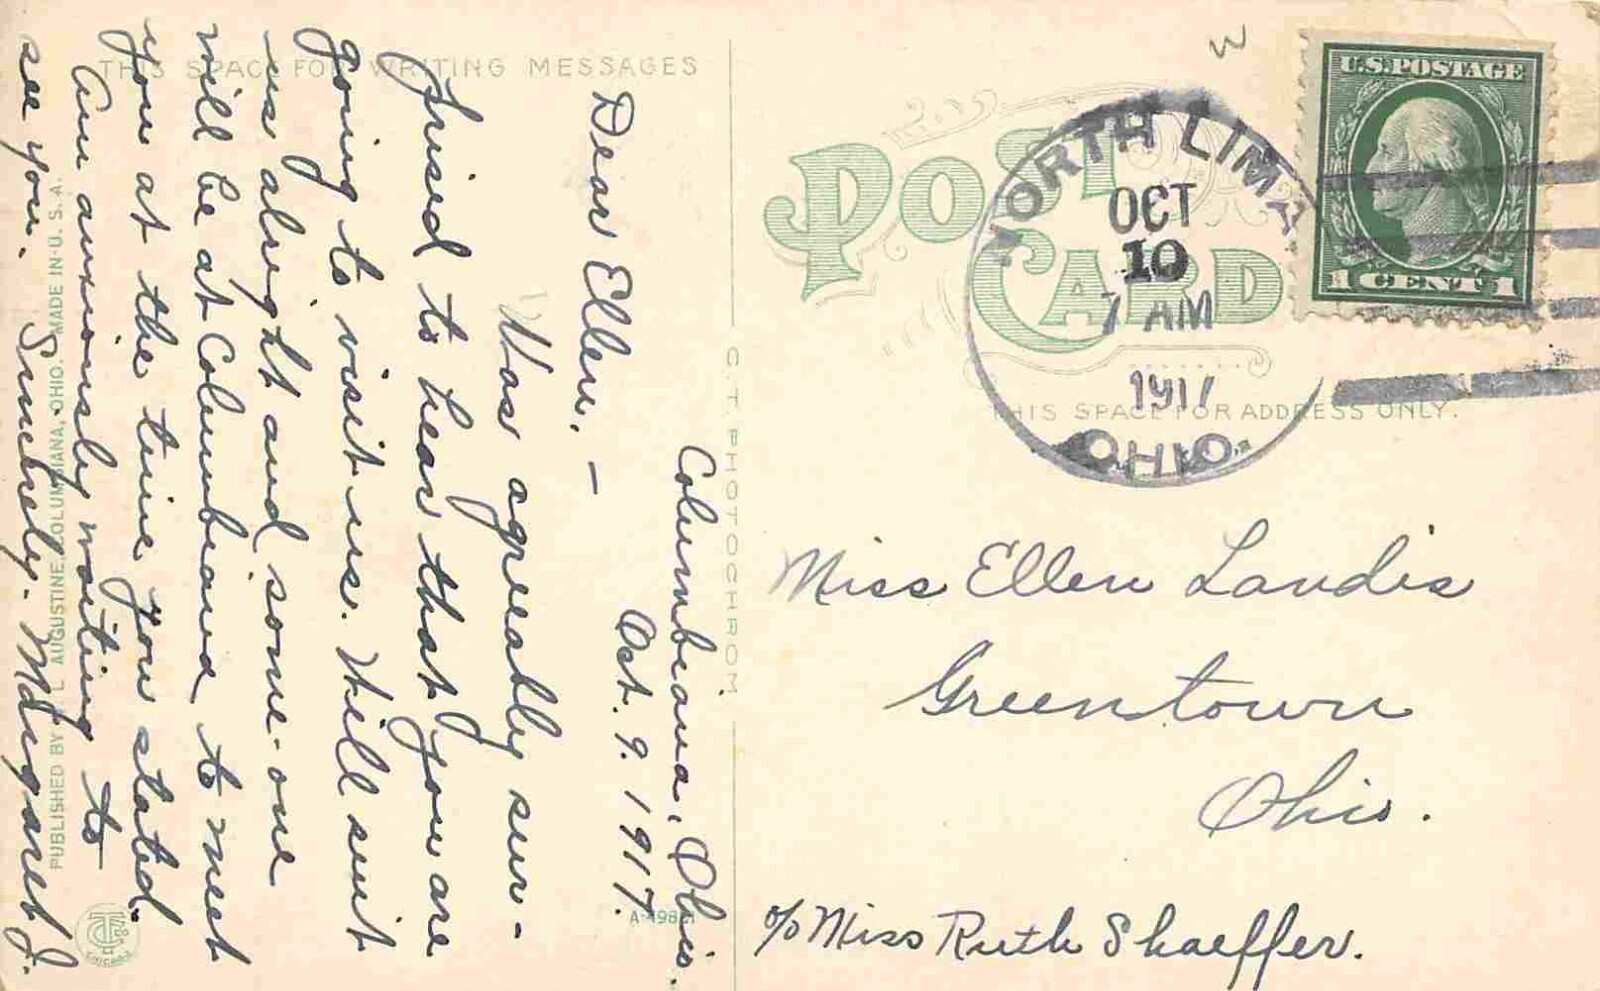 THIS SPACE FOR WRITING MESSAGES
Columbiana, Ohio.
Oct. 9. 1917.
Dear Ellen, –
Was agreeably sur-
prised to hear that you are
going to visit us. Will suit
us alright and some-one
will be at Columbiana to meet
you at the time you stated.
Am anxiously waiting to
see you. Sincerely. Margaret J.
PUBLISHED BY L. AUGUSTINE, COLUMBIANA, OHIO. MADE IN U. S. A.
C. T. PHOTOCHROM
CHICAGO
POST CARD
THIS SPACE FOR ADDRESS ONLY.
NORTH LIMA
OCT
10
7 AM
1917
OHIO.
U.S. POSTAGE
1 CENT 1
Miss Ellen Landis
Greentown
Ohio.
c/o Miss Ruth Shaeffer.